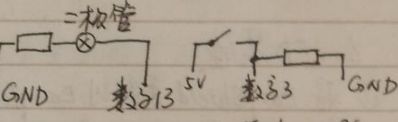 二极管
GND 数字13 5V 数字3 GND